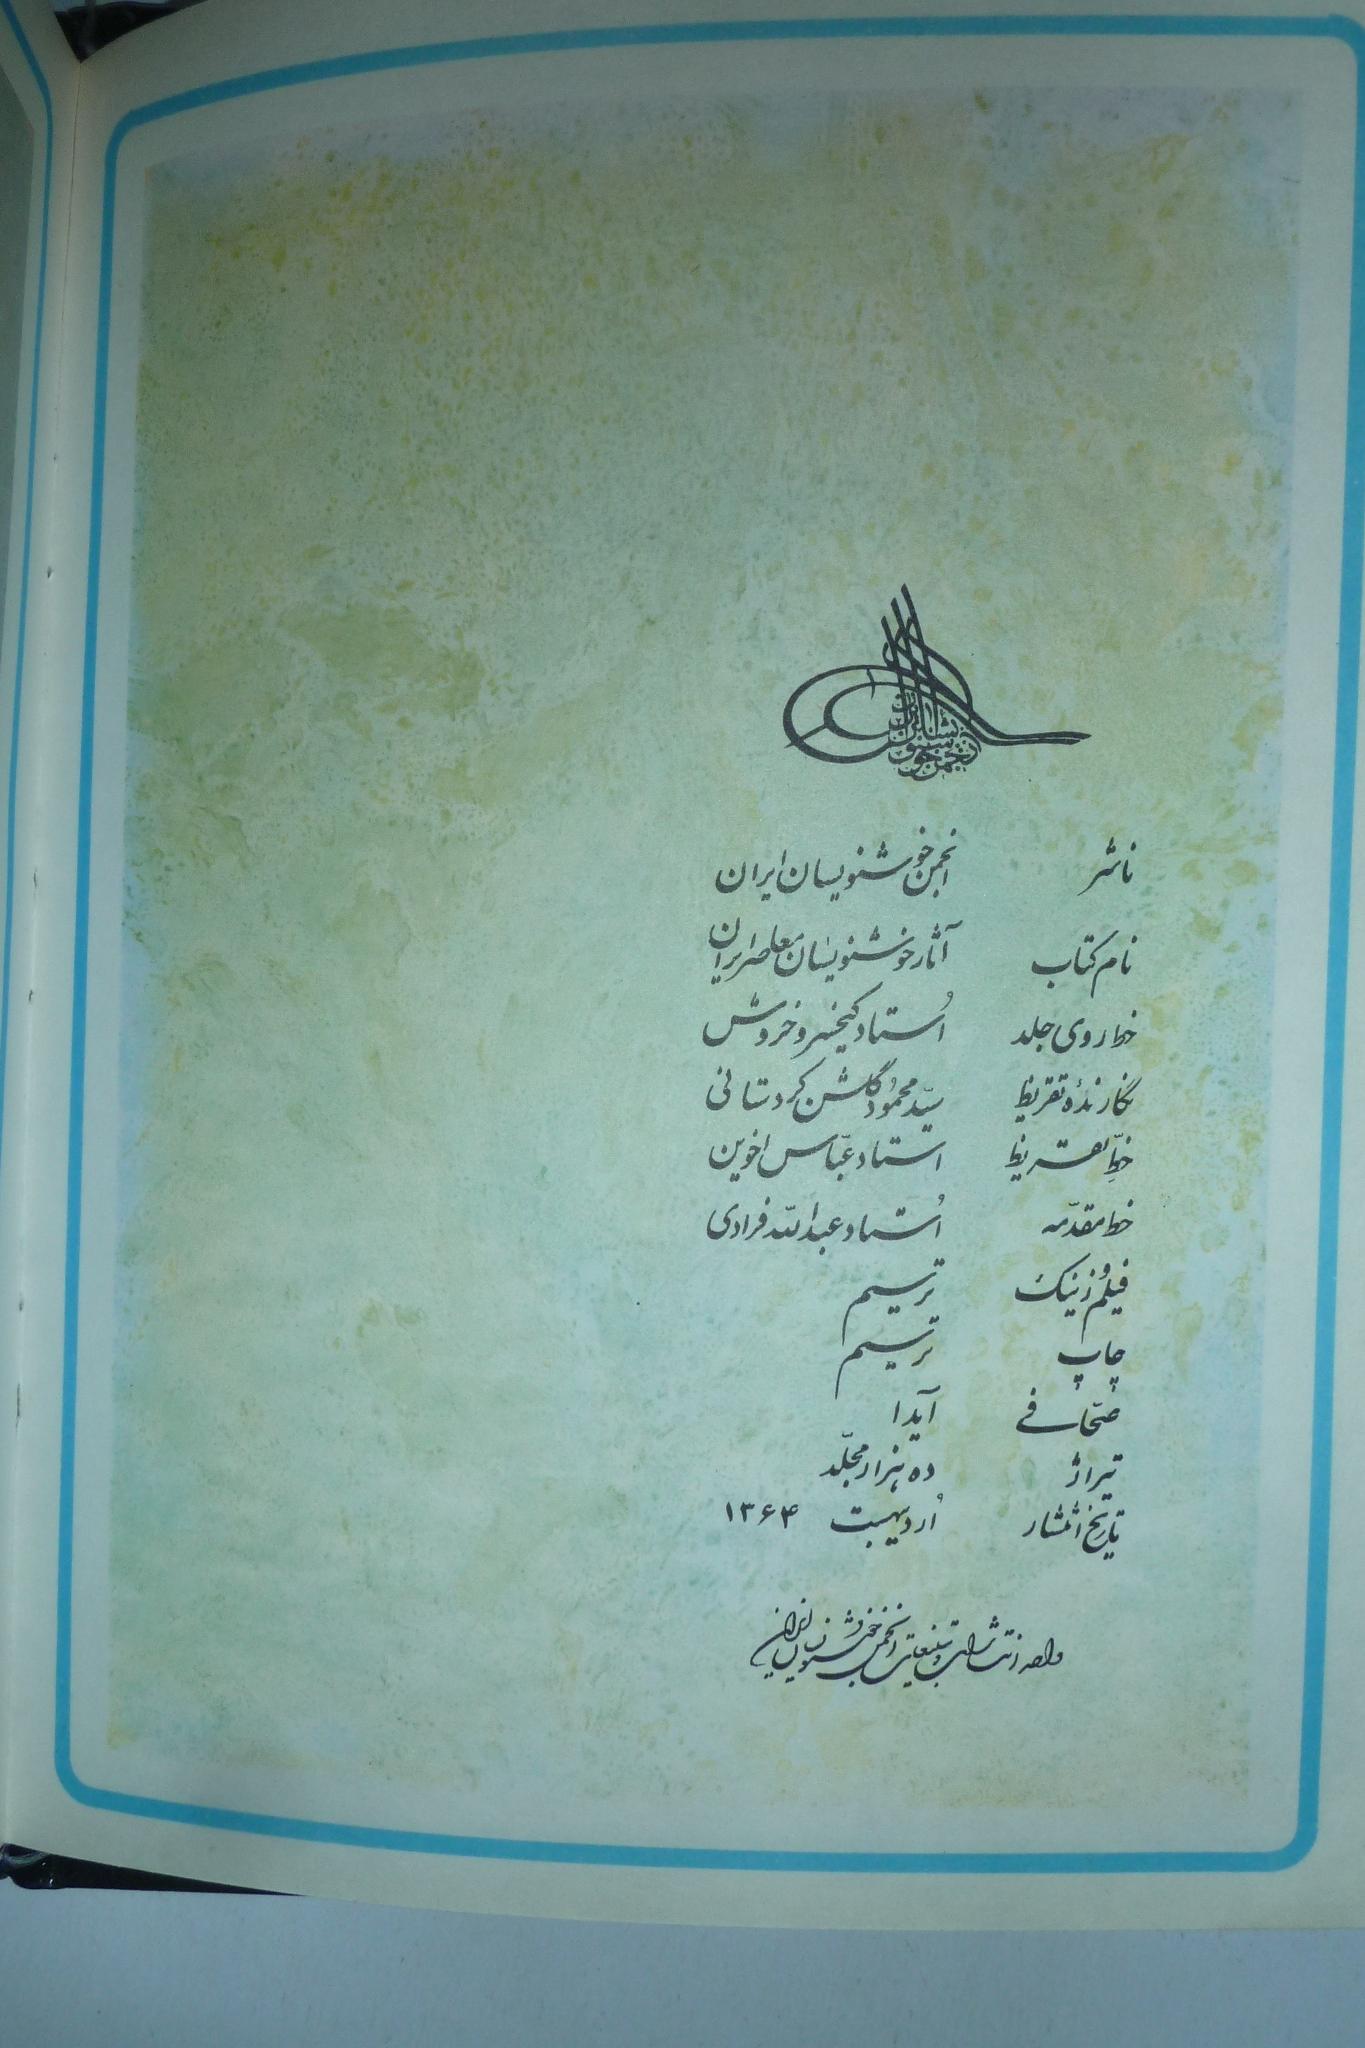 انجمن خوشنویسان ایران
ناشر انجمن خوشنویسان ایران
نام کتاب آثار خوشنویسان معاصر ایران
خط روی جلد اُستاد کیخسرو خروش
نگارندهٔ تقریظ سیّد محمُود گلشن کردستانی
خطِّ تقریظ استاد عبّاس اخوین
خط مقدّمه اُستاد عبدالله فرادی
فیلم و زینک ترسیم
چاپ ترسیم
صحّافی آیدا
تیراژ ده هزار مجلّد
تاریخ انتشار اُردیبهشت ۱۳۶۴
واحد انتشارات و تبلیغات انجمن خوشنویسان ایران